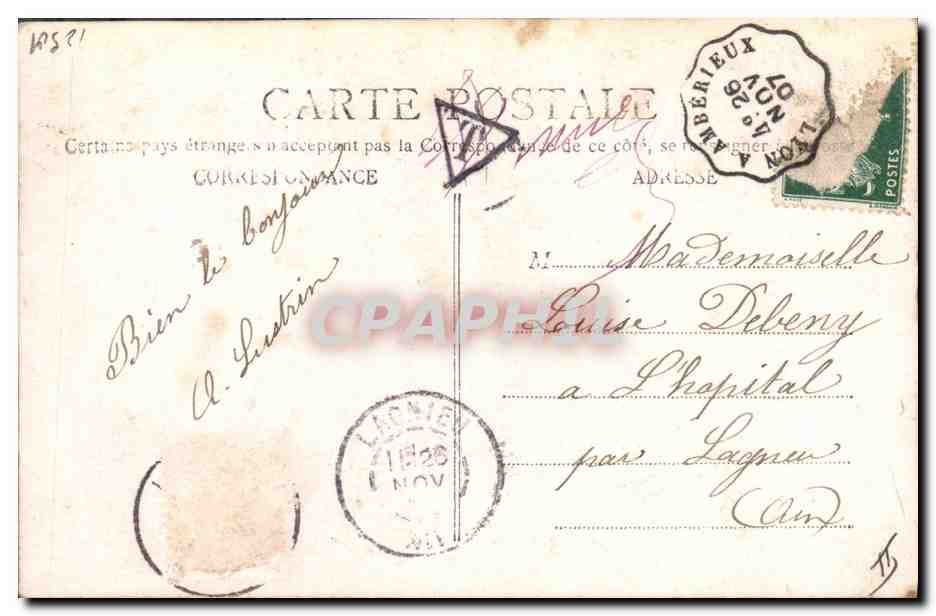 CARTE POSTALE
Certains pays étrangers n'acceptent pas la Correspondance de ce côté, se renseigner à la Poste
CORRESPONDANCE
ADRESSE
LYON A AMBÉRIEUX
4° 26
NOV
07
POSTES
5
T
Bien le bonjour
A. Lustrin
M Mademoiselle
Louise Debeny
a L'hopital
par Lagneu
(Ain)
CPAPHIL
LAGNIEU
1E 26
NOV
AIN